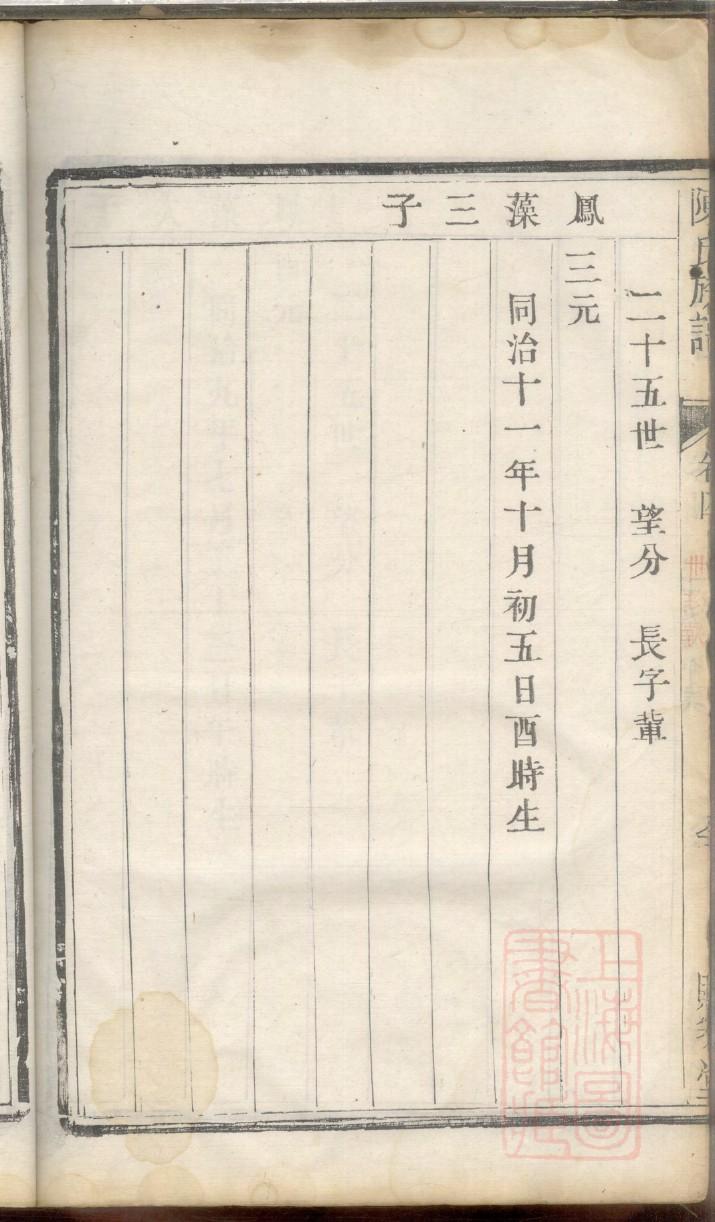 陳氏族譜
卷四
二十五世　望分　長字輩
鳳藻三子
三元
同治十一年十月初五日酉時生
上海圖書館藏